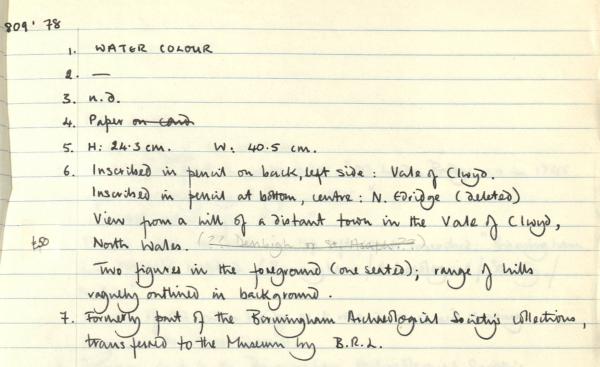 809'78
1. WATER COLOUR
2. —
3. n.d.
4. Paper on card
5. H: 24.3 cm. W: 40.5 cm.
6. Inscribed in pencil on back, left side: Vale of Clwyd.
Inscribed in pencil at bottom, centre: N. Edridge (deleted)
View from a hill of a distant town in the Vale of Clwyd,
£50 North Wales. (?? Denbigh or St. Asaph??)
Two figures in the foreground (one seated); range of hills
vaguely outlined in background.
7. Formerly part of the Birmingham Archaeological Society's collections,
transferred to the Museum by B.R.L.